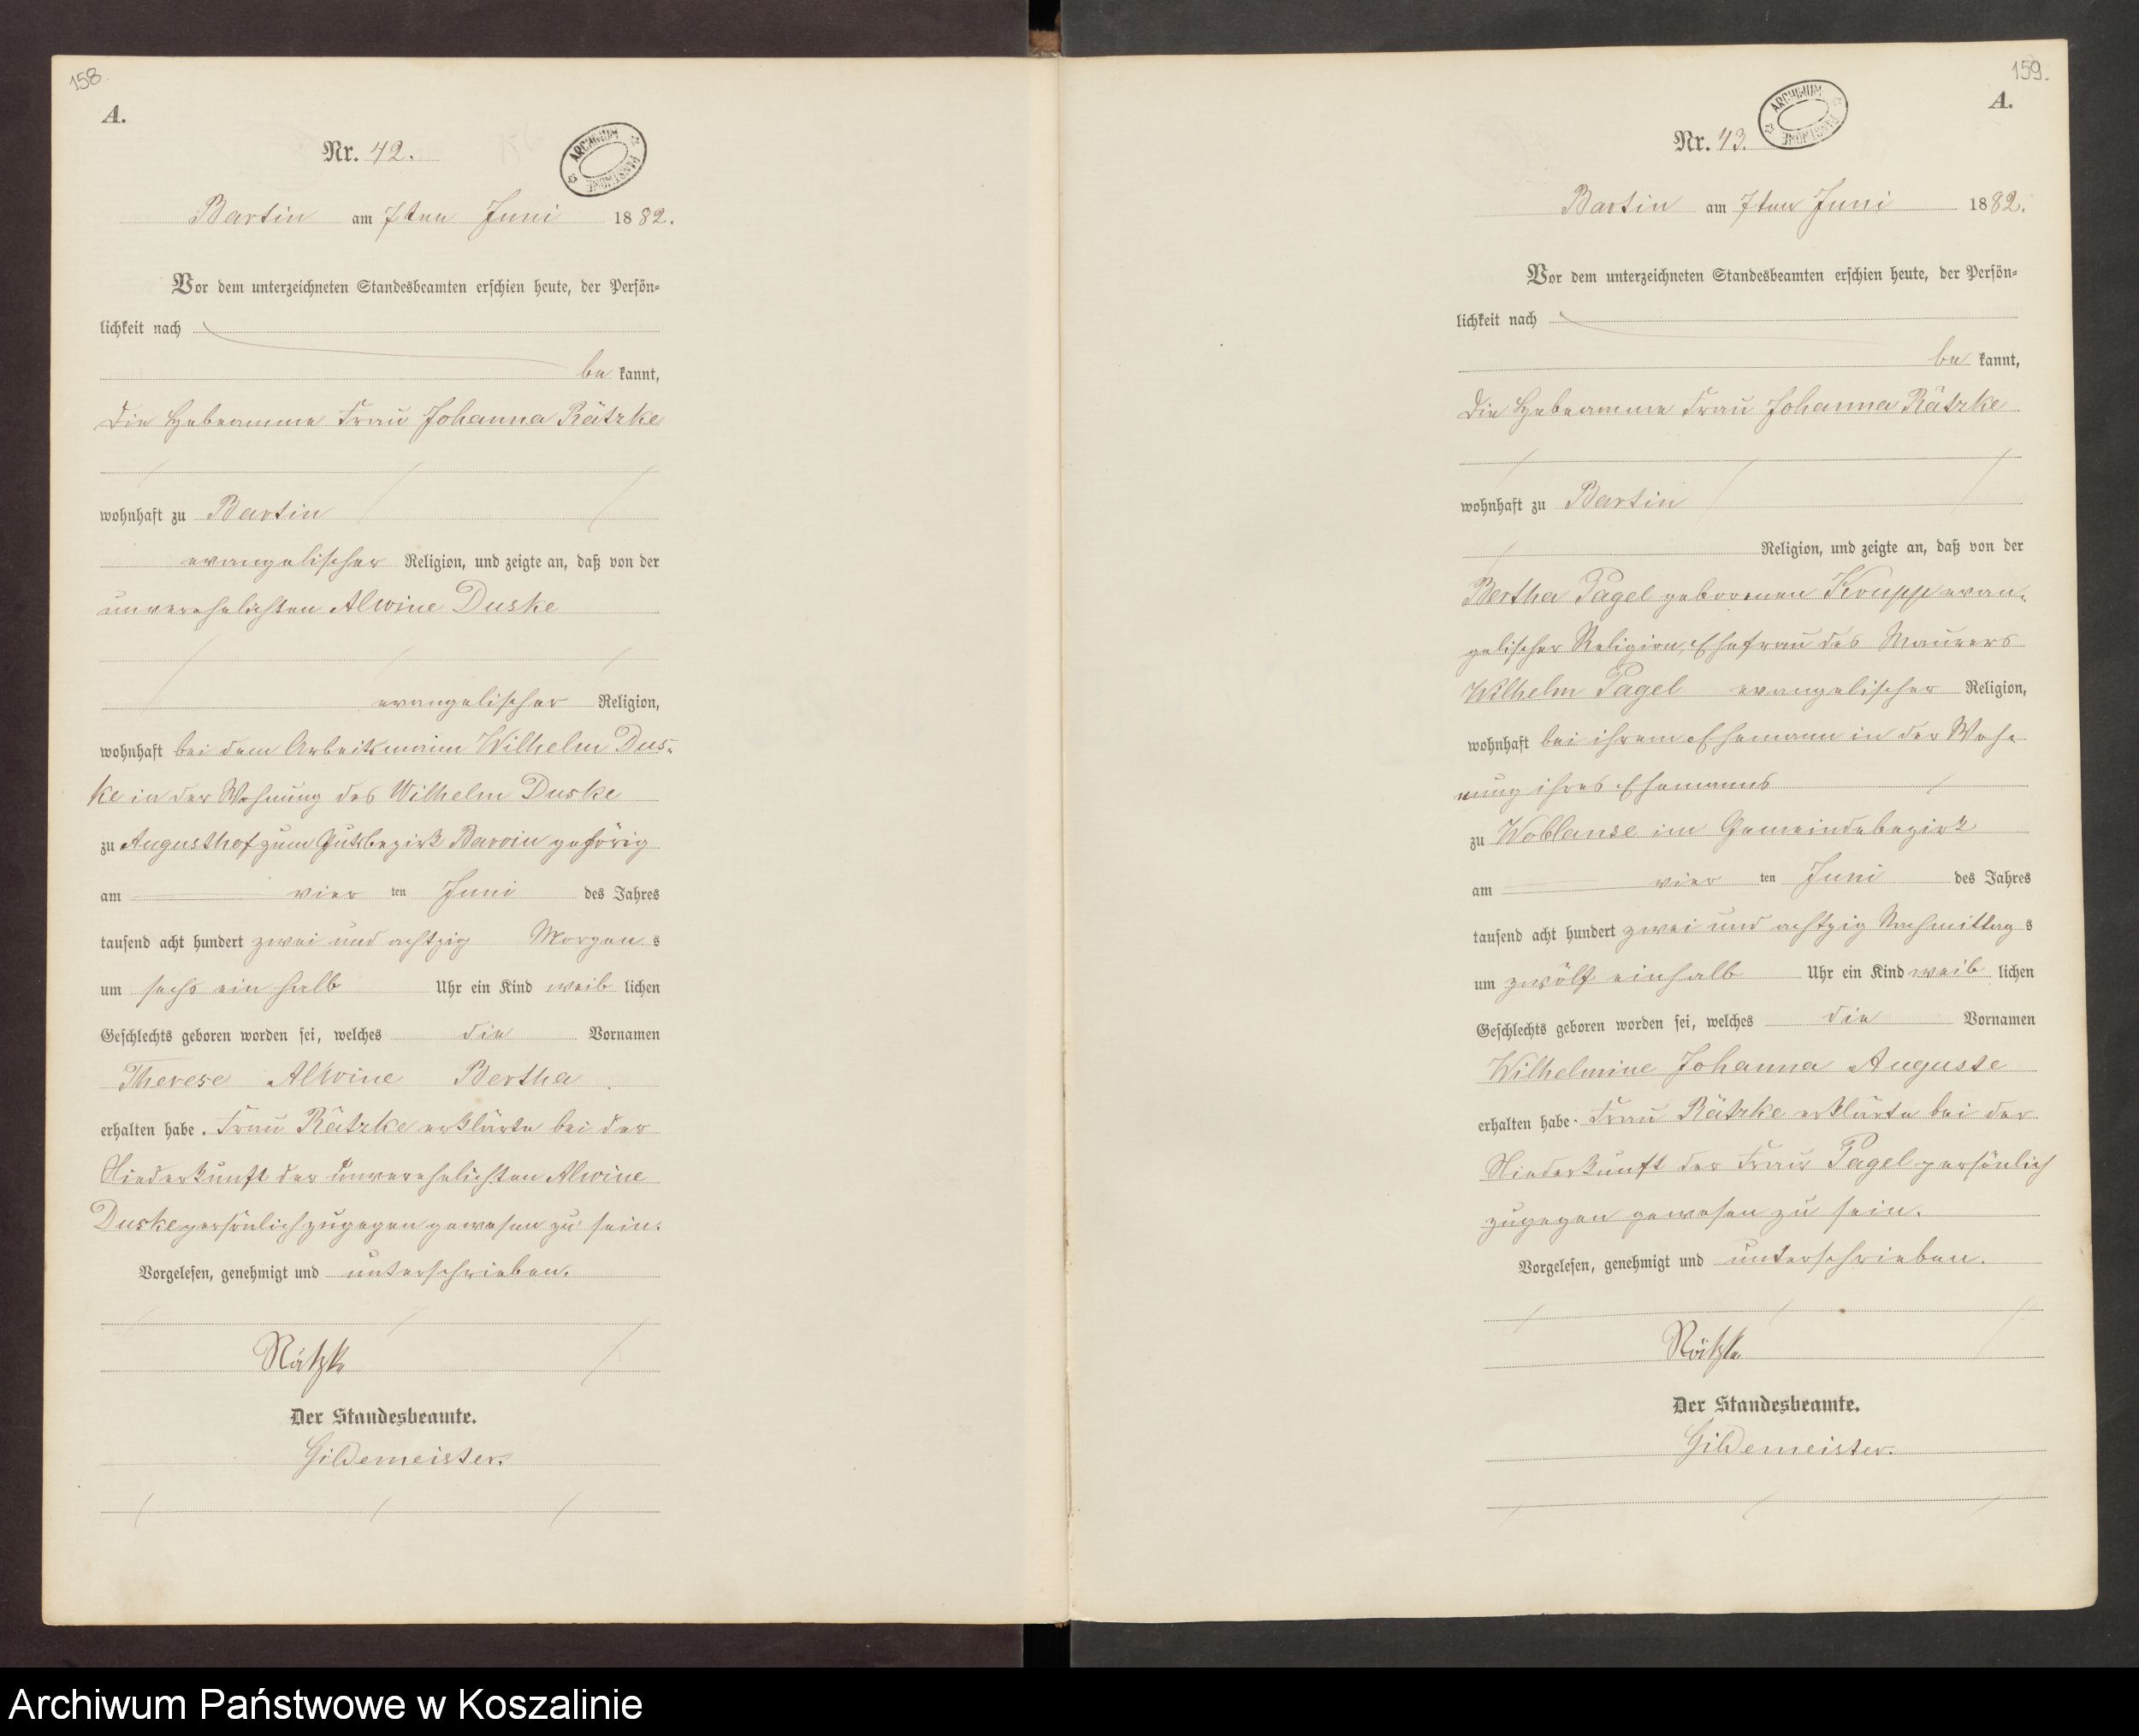 158
A.
Nr. 42.
ARCHIWUM PAŃSTWOWE
Bartin am 7ten Juni 1882.
Vor dem unterzeichneten Standesbeamten erschien heute, der Persön-
lichkeit nach
be kannt,
die Hebeamme Frau Johanna Rätzke
wohnhaft zu Bartin
evangelischer Religion, und zeigte an, daß von der
unverehelichten Alwine Duske
evangelischer Religion,
wohnhaft bei dem Arbeitsmann Wilhelm Dus-
ke in der Wohnung des Wilhelm Duske
zu Augusthof zum Gutsbezirk Barvin gehörig
am vier ten Juni des Jahres
tausend acht hundert zwei und achtzig Morgens
um sechs ein halb Uhr ein Kind weib lichen
Geschlechts geboren worden sei, welches die Vornamen
Therese Alwine Bertha
erhalten habe. Frau Rätzke erklärte bei der
Niederkunft der unverehelichten Alwine
Duske persönlich zugegen gewesen zu sein.
Vorgelesen, genehmigt und unterschrieben.
Rätzke
Der Standesbeamte.
Gildemeister.
159.
A.
Nr. 43.
ARCHIWUM PAŃSTWOWE
Bartin am 7ten Juni 1882.
Vor dem unterzeichneten Standesbeamten erschien heute, der Persön-
lichkeit nach
be kannt,
die Hebeamme Frau Johanna Rätzke
wohnhaft zu Bartin
Religion, und zeigte an, daß von der
Bertha Pagel geborenen Krupp evan-
gelischer Religion, Ehefrau des Maurers
Wilhelm Pagel evangelischer Religion,
wohnhaft bei ihrem Ehemann in der Woh-
nung ihres Ehemanns
zu Woblanse im Gemeindebezirk
am vier ten Juni des Jahres
tausend acht hundert zwei und achtzig Nachmittags
um zwölf einhalb Uhr ein Kind weib lichen
Geschlechts geboren worden sei, welches die Vornamen
Wilhelmine Johanna Auguste
erhalten habe. Frau Rätzke erklärte bei der
Niederkunft der Frau Pagel persönlich
zugegen gewesen zu sein.
Vorgelesen, genehmigt und unterschrieben.
Rätzke
Der Standesbeamte.
Gildemeister.
Archiwum Państwowe w Koszalinie